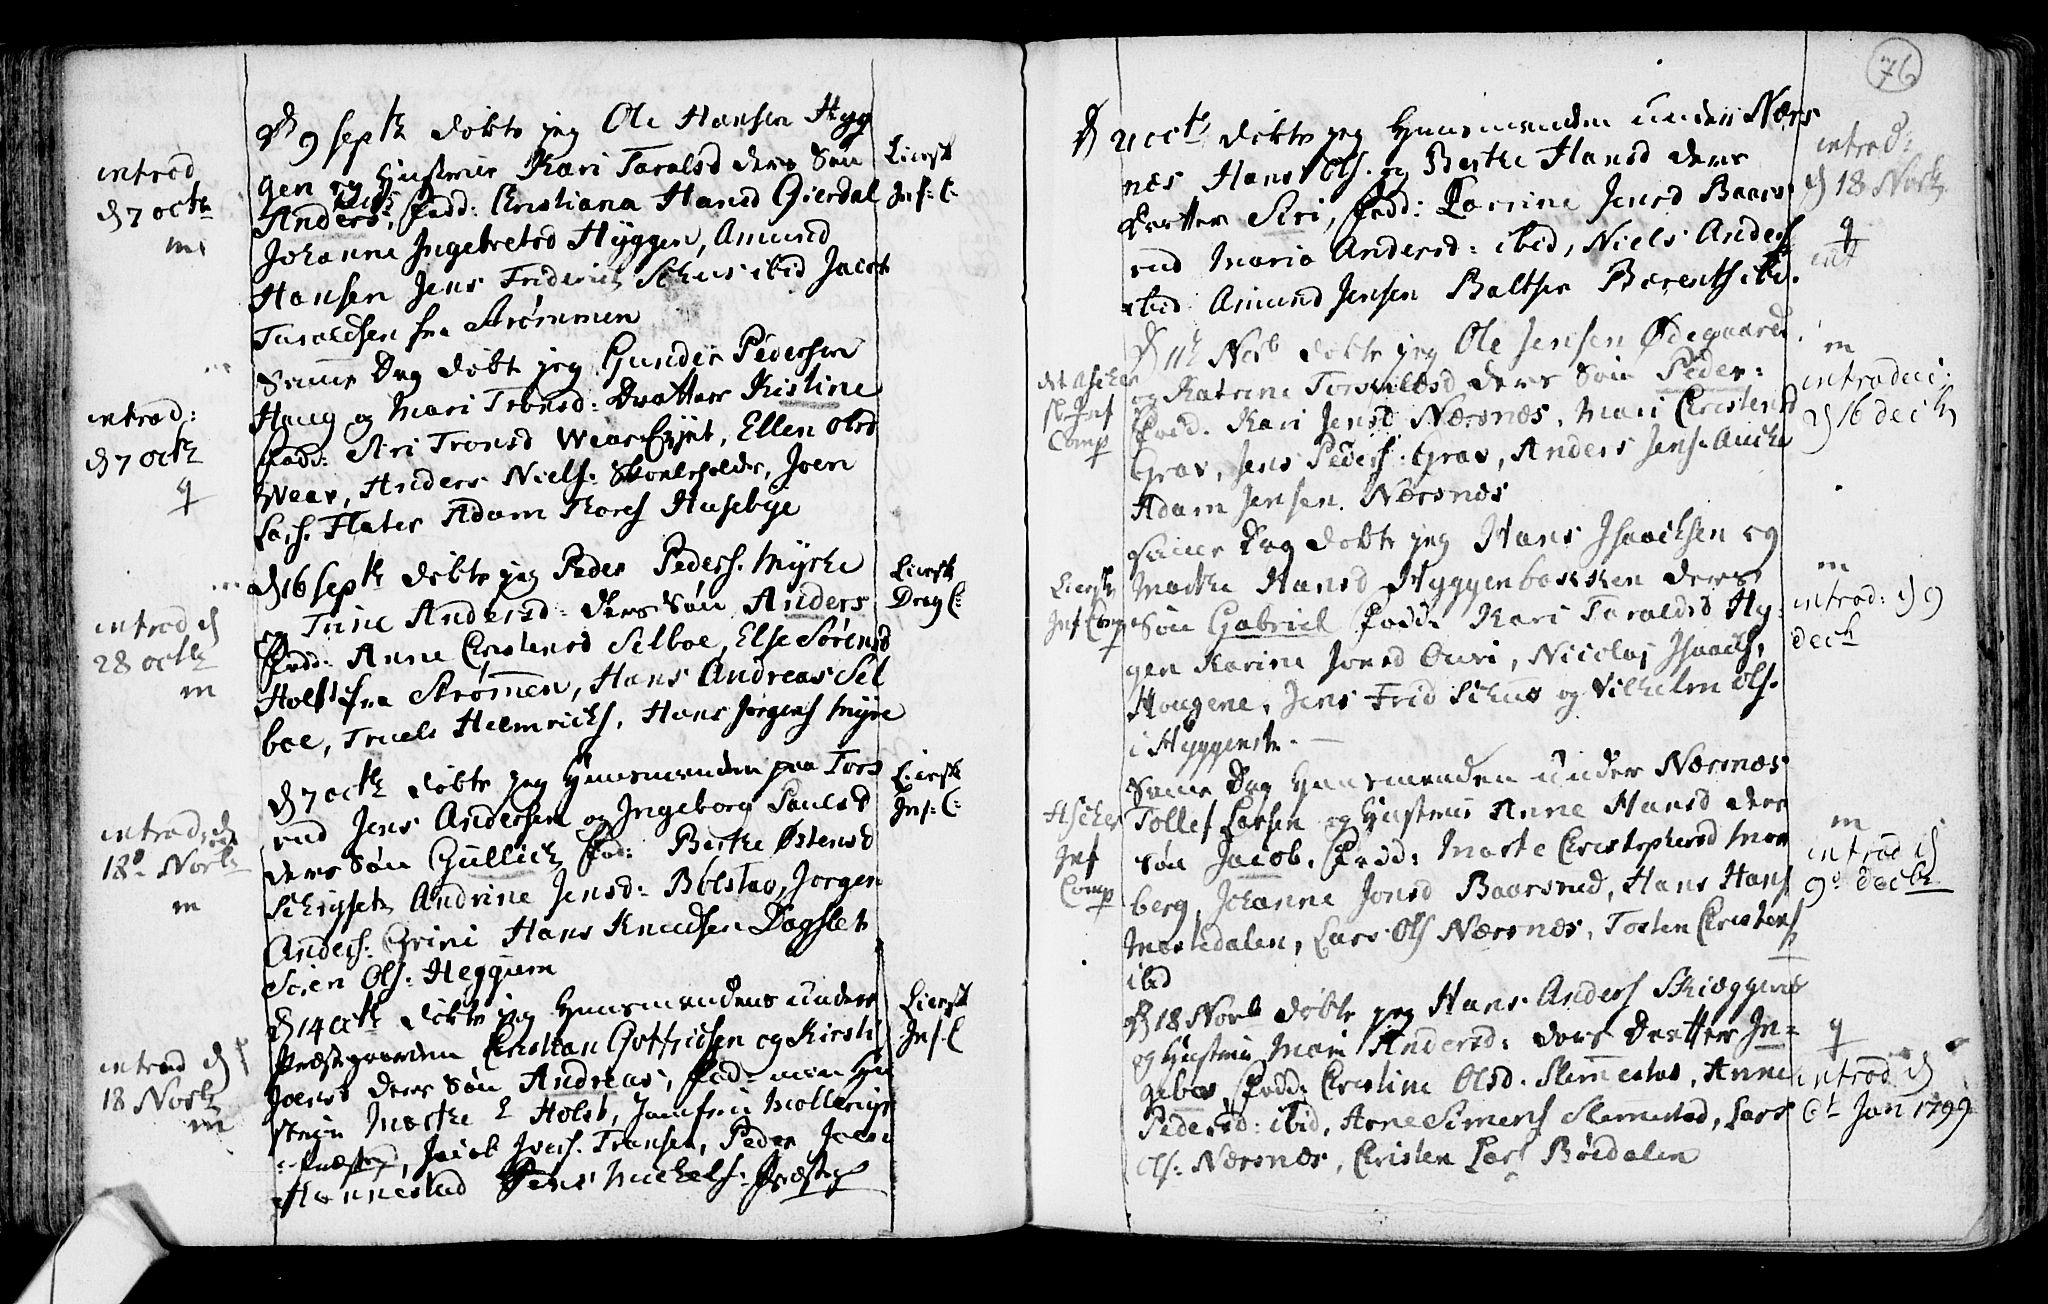 76
introd
d 7 octb
m
d 9 septb døbte jeg Ole Hansen Hyg
gen og Hustrue Kari Taralsd ders Søn
Anders, Fadd: Christiana Hansd Gierdal
Johanne Ingebretsd Hyggen, Amund
Hansen Jens Friderich Schus ibid Jacob
Taraldsen fra Strømmen
Liersk
Inf: C:
introd:
d 7 octb
q
Same Dag døbt jeg Gunder Pedersen
Haug og Mari Tronsd: Daatter Kistine
Fadd: Siri Tronsd Wear Eyet, Ellen Olsd
Wear, Anders Niels: Skoleholder, Joen
Lars. Flater Adam Thores Husebye
introd d
28 octb
m
d 16 septb døbte jeg Peder Peders. Myrhe
og Trine Andersd: ders Søn Anders
Fadd: Anne Christensd Selboe, Else Sørensd
Holst fra Strømmen, Hans Andreas Sel
boe, Truels Helmrichs, Hans Jørgens Myre
Liersk
Drag C:
introd: d
18 Novb
m
d 7 octb døbte jeg Huusmanden paa Tors
rud Jens Andersen og Ingeborg Paulsd
ders Søn Gullich Fad: Berthe Østensd
Andrine Jensd: Bølstad, Jørgen
Anders: Grini Hans Knudsen Dagslet
Søren Ols: Heggum
Liersk
Inf: C:
introd d
18 Novb
m
d 14 octb døbte jeg Huusmandens under
Præstegaarden Christian Gotfridsen og Kirsti
Joensd ders Søn Andreas, Fad: min Hu
strue Marthe E Holst, Jomfrue Møllerup
Præstegd, Jacob Ivers. Transen, Peder Joens
Hannestad Jens Michels: Præsteg
Liersk
Inf. C
d 21 octb døbte jeg Huusmanden under Nærs
nes Hans Ols. og Berthe Hansd ders
Daatter Siri, Fadd: Karine Jensd Baars
rud Maria Andersd: ibid, Niels Anders
ibid Amund Jensen Baltser Berents ibd.
introd:
d 18 Novb
q
d 11 Novb døbte jeg Ole Jensen Ødegaard
og Katrine Torkildsd ders Søn Peder:
Fadd. Kari Jensd Nærsnes, Mari Christensd
Grav, Jens Peders: Grav, Anders Jens.
Adam Jensen. Nærsnes
Comp
m
introduc:
d 16 decb
Same Dag døbte jeg Hans Isaachsen og
Marthe Hansd Hyggenbakken ders
Søn Gabriel Fadd. Kari Taraldsd Hy
gen Karine Jonsd Ouri, Nicolaj Isaachs,
Hougene, Jens Frid Schus og Vilhelm Ols.
i Hyggenstr.
Liersk
Inf Comp
m
introd: d 9
decb
Same Dag Huusmanden under Nærsnes
Tollef Larsen og Hustrue Anne Hansd ders
Søn Jacob. Fadd: Marte Christophersd Mor
berg, Johanne Jonsd Baarsrud, Hans Hans
Morkedalen, Lars Ols Nærsnes, Tosten Christens
ibid
Ascher
Inf
Comp
m
introd d
9 decb
d 18 Novb døbte jeg Hans Anders Skieggerud
og Hustrue Mari Andersd: ders Daatter In-
gebor, Fadd: Christine Olsd. Slemmestad, Anne
Pedersd: ibid, Arne Simens Slemmestad, Lars
Ols: Nærsnes, Christen Lars Bødalen
q
introd d
6t Jan 1799